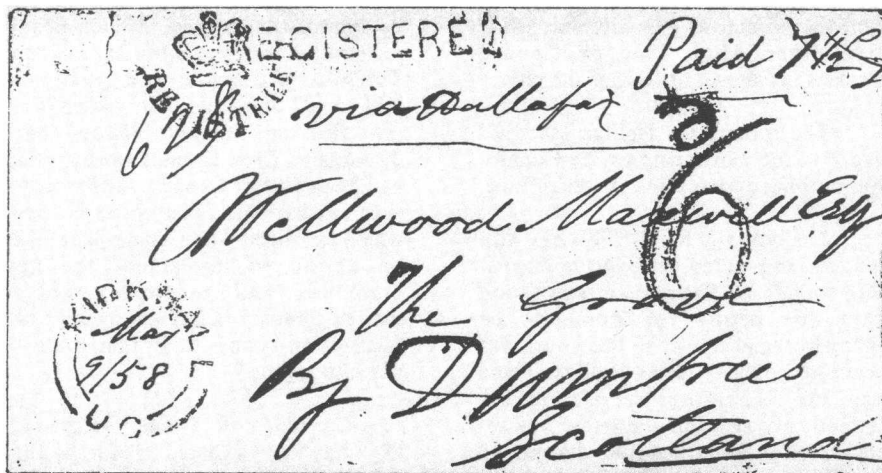 REGISTERED
REGISTERED
Paid 7½
via Hallafax
6
Wellwood Maxwell Esq
The Grove
By Dumfries
Scotland
KIRKWALL
May
9/58
U C